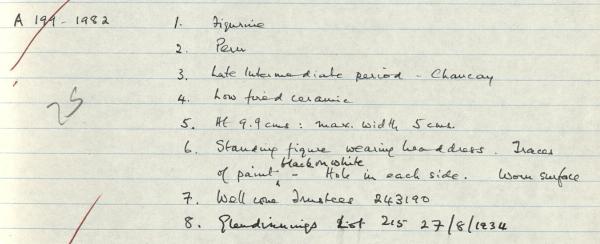 A 199-1982
1. Figurine
2. Peru
3. Late Intermediate period - Chancay
4. Low fired ceramic
5. Ht 9.9 cms : max. width 5 cms.
6. Standing figure wearing headdress. Traces
of paint black on white - Hole in each side. Worn surface
7. Wellcome Trustees 243190
8. Glendinnings Lot 215 27/8/1934
25